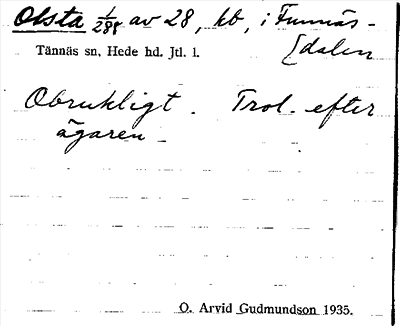 Olsta 1/288 av 28, kb, i Funnäs-
[dalen
Tännäs sn, Hede hd. Jtl. l.
Obrukligt. Trol. efter
ägaren
O. Arvid Gudmundson 1935.